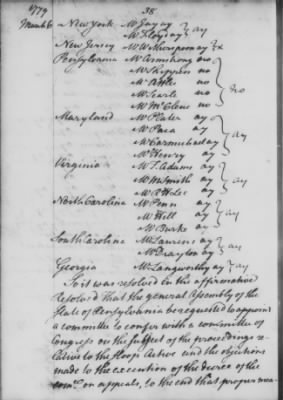 1779 38
March 6 New York Mr Jay ay } ay
Mr Floyd ay
New Jersey Mr Witherspoon ay } x
Pensylvania Mr Armstrong no
Mr Shippen no
Mr Atlee no } no
Mr Searle no
Mr McClene no
Maryland Mr Plater ay
Mr Paca ay } ay
Mr Carmichael ay
Mr Henry ay
Virginia Mr T. Adams ay
Mr M Smith ay } ay
Mr R H Lee ay
North Carolina Mr Penn ay
Mr Hill ay } ay
Mr Burke ay
South Carolina Mr Laurens ay } ay
Mr Drayton ay
Georgia Mr Langworthy ay } ay
So it was resolved in the affirmative
Resolved That the general Assembly of the
State of Pensylvania be requested to appoint
a committee to confer with a committee of
Congress on the subject of the proceedings re-
lative to the sloop Active and the objections
made to the execution of the decree of the
comee on appeals, to the end that proper mea-